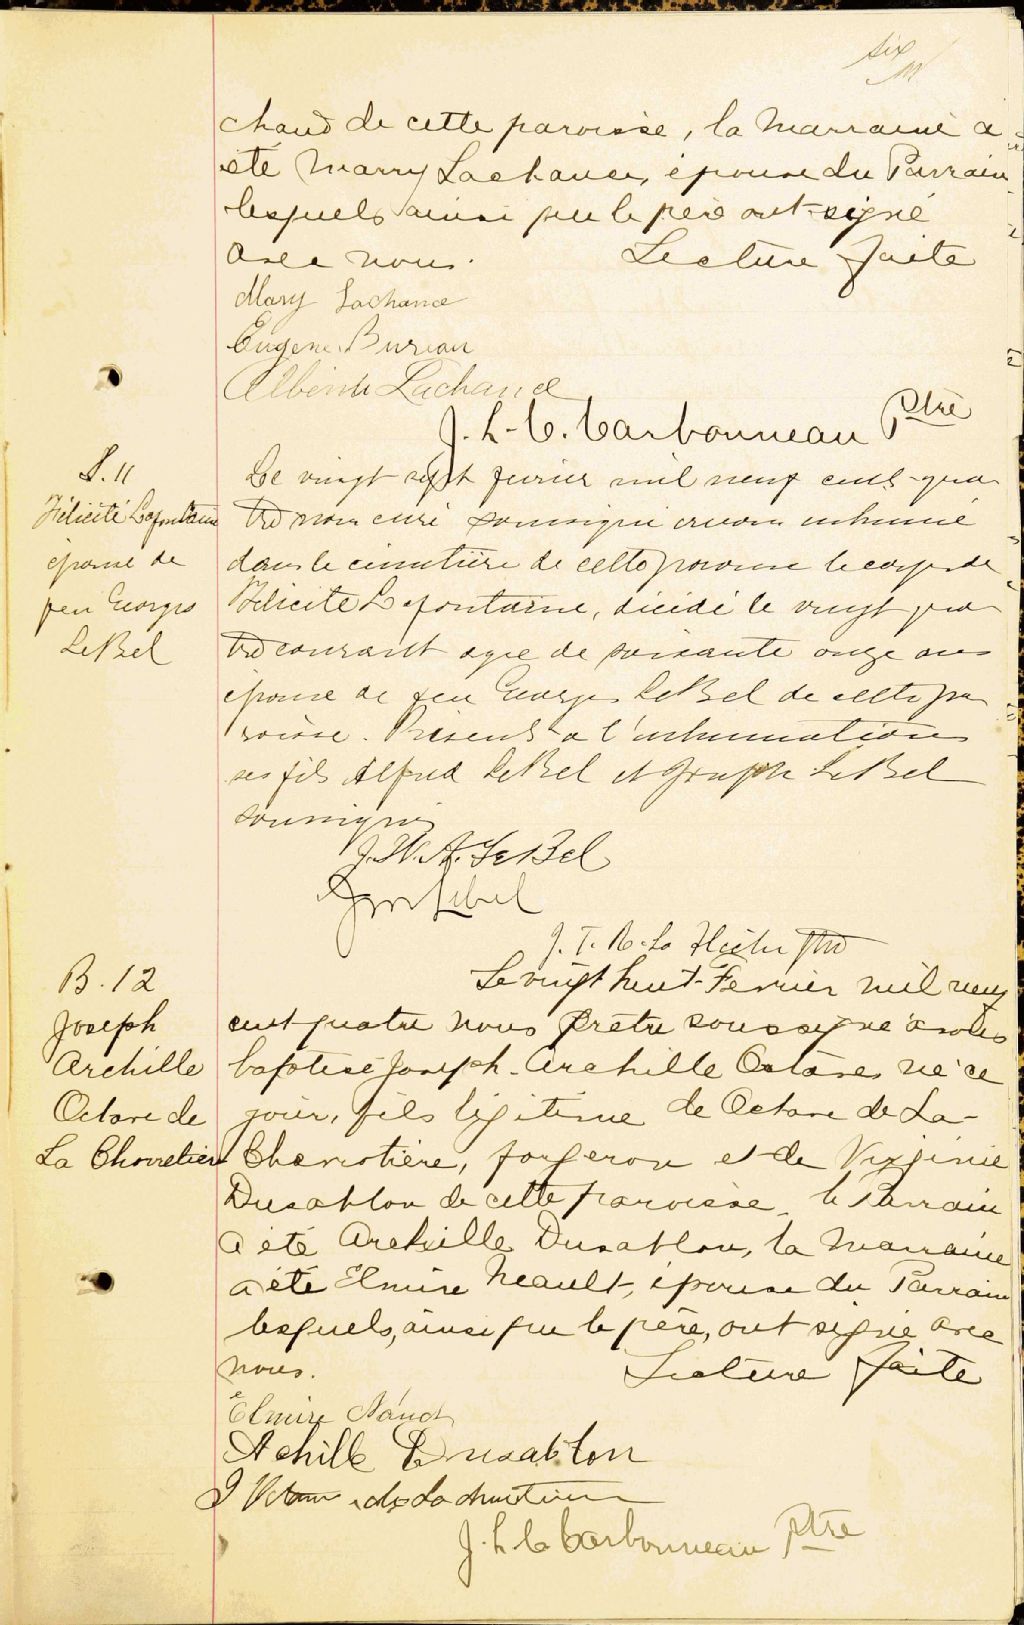 six
chaud de cette paroisse, la Marraine a
été Marry Lachance, épouse du Parrain
lesquels ainsi que le père ont signé
avec nous. Lecture faite
Mary Lachance
Eugène Bureau
Albénie Lachance
J. L. C. Carbonneau Ptre
S. 11
Félicité Lafontaine
épouse de
feu Georges
LeBel
Le vingt sept février mil neuf cent qua
tre nous curé soussigné avons inhumé
dans le cimetière de cette paroisse le corps de
Félicité Lafontaine, décédé le vingt qua
tre courant agée de soixante onze ans
épouse de feu Georges LeBel de cette pa
roisse. Présents a l'inhumation
ses fils Alfred LeBel et Joseph LeBel
soussignés
J. W. A. LeBel
Jos Lebel
J. T. A. La Flèche Ptre
B. 12
Joseph
Archille
Octave de
La Chevretière
Le vingt huit Fevrier mil neuf
cent quatre nous prêtre soussigné avons
baptisé Joseph Archille Octave, né ce
jour, fils légitime de Octave de La-
Chevrotière, forgeron et de Virginie
Dusablon de cette paroisse, le Parrain
a été Archille Dusablon, la Marraine
a été Elmire Neault, épouse du Parrain
lesquels, ainsi que le père, ont signé avec
nous. Lecture faite
Elmire
Achille Dusablon
J Octave de La
J. L. C. Carbonneau Ptre